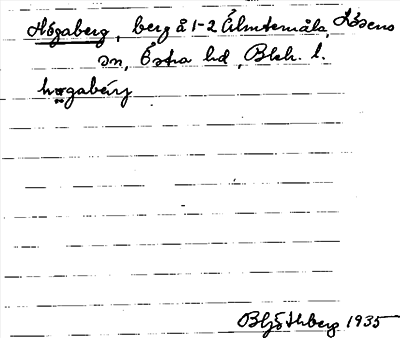 Högaberg, berg å 1-2 Älmtemåla, Lösens
sn, Östra hd, Blek. l.
högabärj
B Hjöthberg 1935